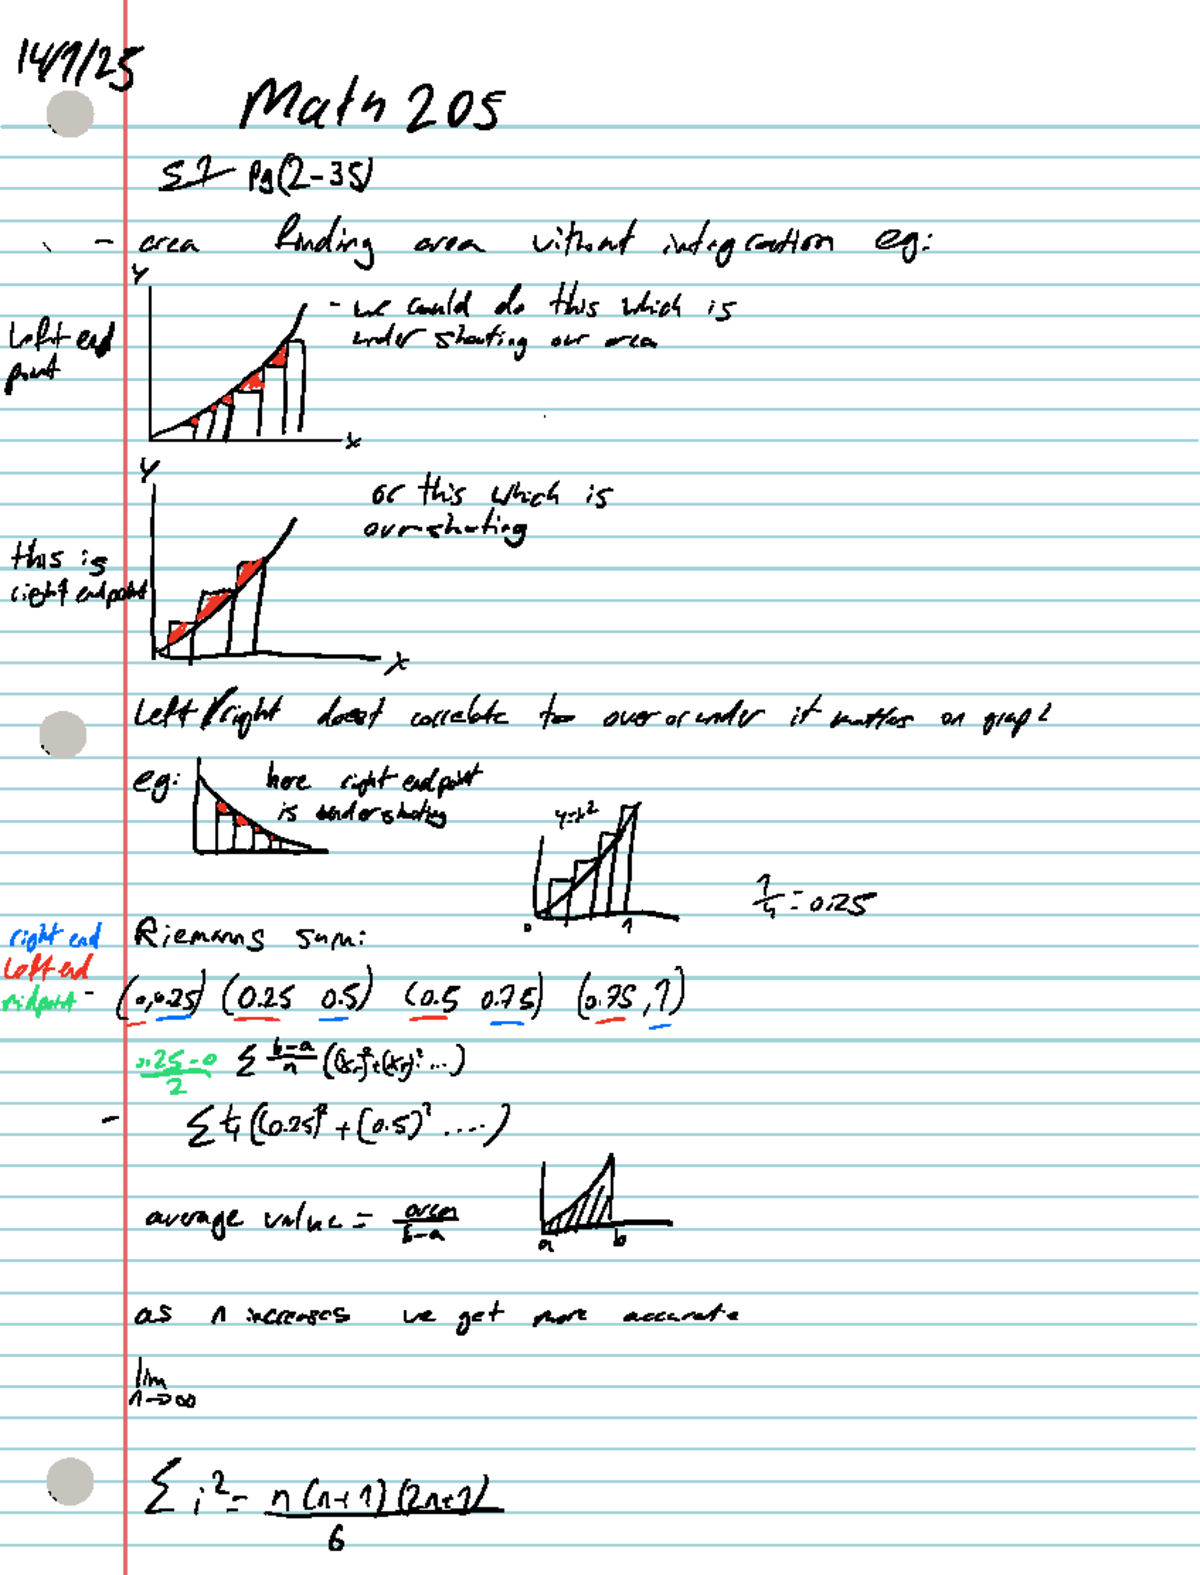 14/1/25
Math 205
51 Pg(2-35)
- area finding area without integration eg:
Y
Left end
point
- we could do this which is
under shooting our area
x
Y
or this which is
overshooting
this is
right endpoint
x
Left/right doesnt correlate to over or under it matters on graph
eg:
here right endpoint
is undershooting
y=x²
0 1
1/4 = 0.25
Riemanns sum:
right end
Left end
midpoint - (0,0.25) (0.25 0.5) (0.5 0.75) (0.75,1)
0.25-0/2 Σ b-a/n ((x₁)²+(x₂)²...)
- Σ 1/4 ((0.25)² + (0.5)² ....)
average value = area/b-a
a b
as n increases we get more accurate
lim
n→∞
Σ i² = n(n+1)(2n+1)/6